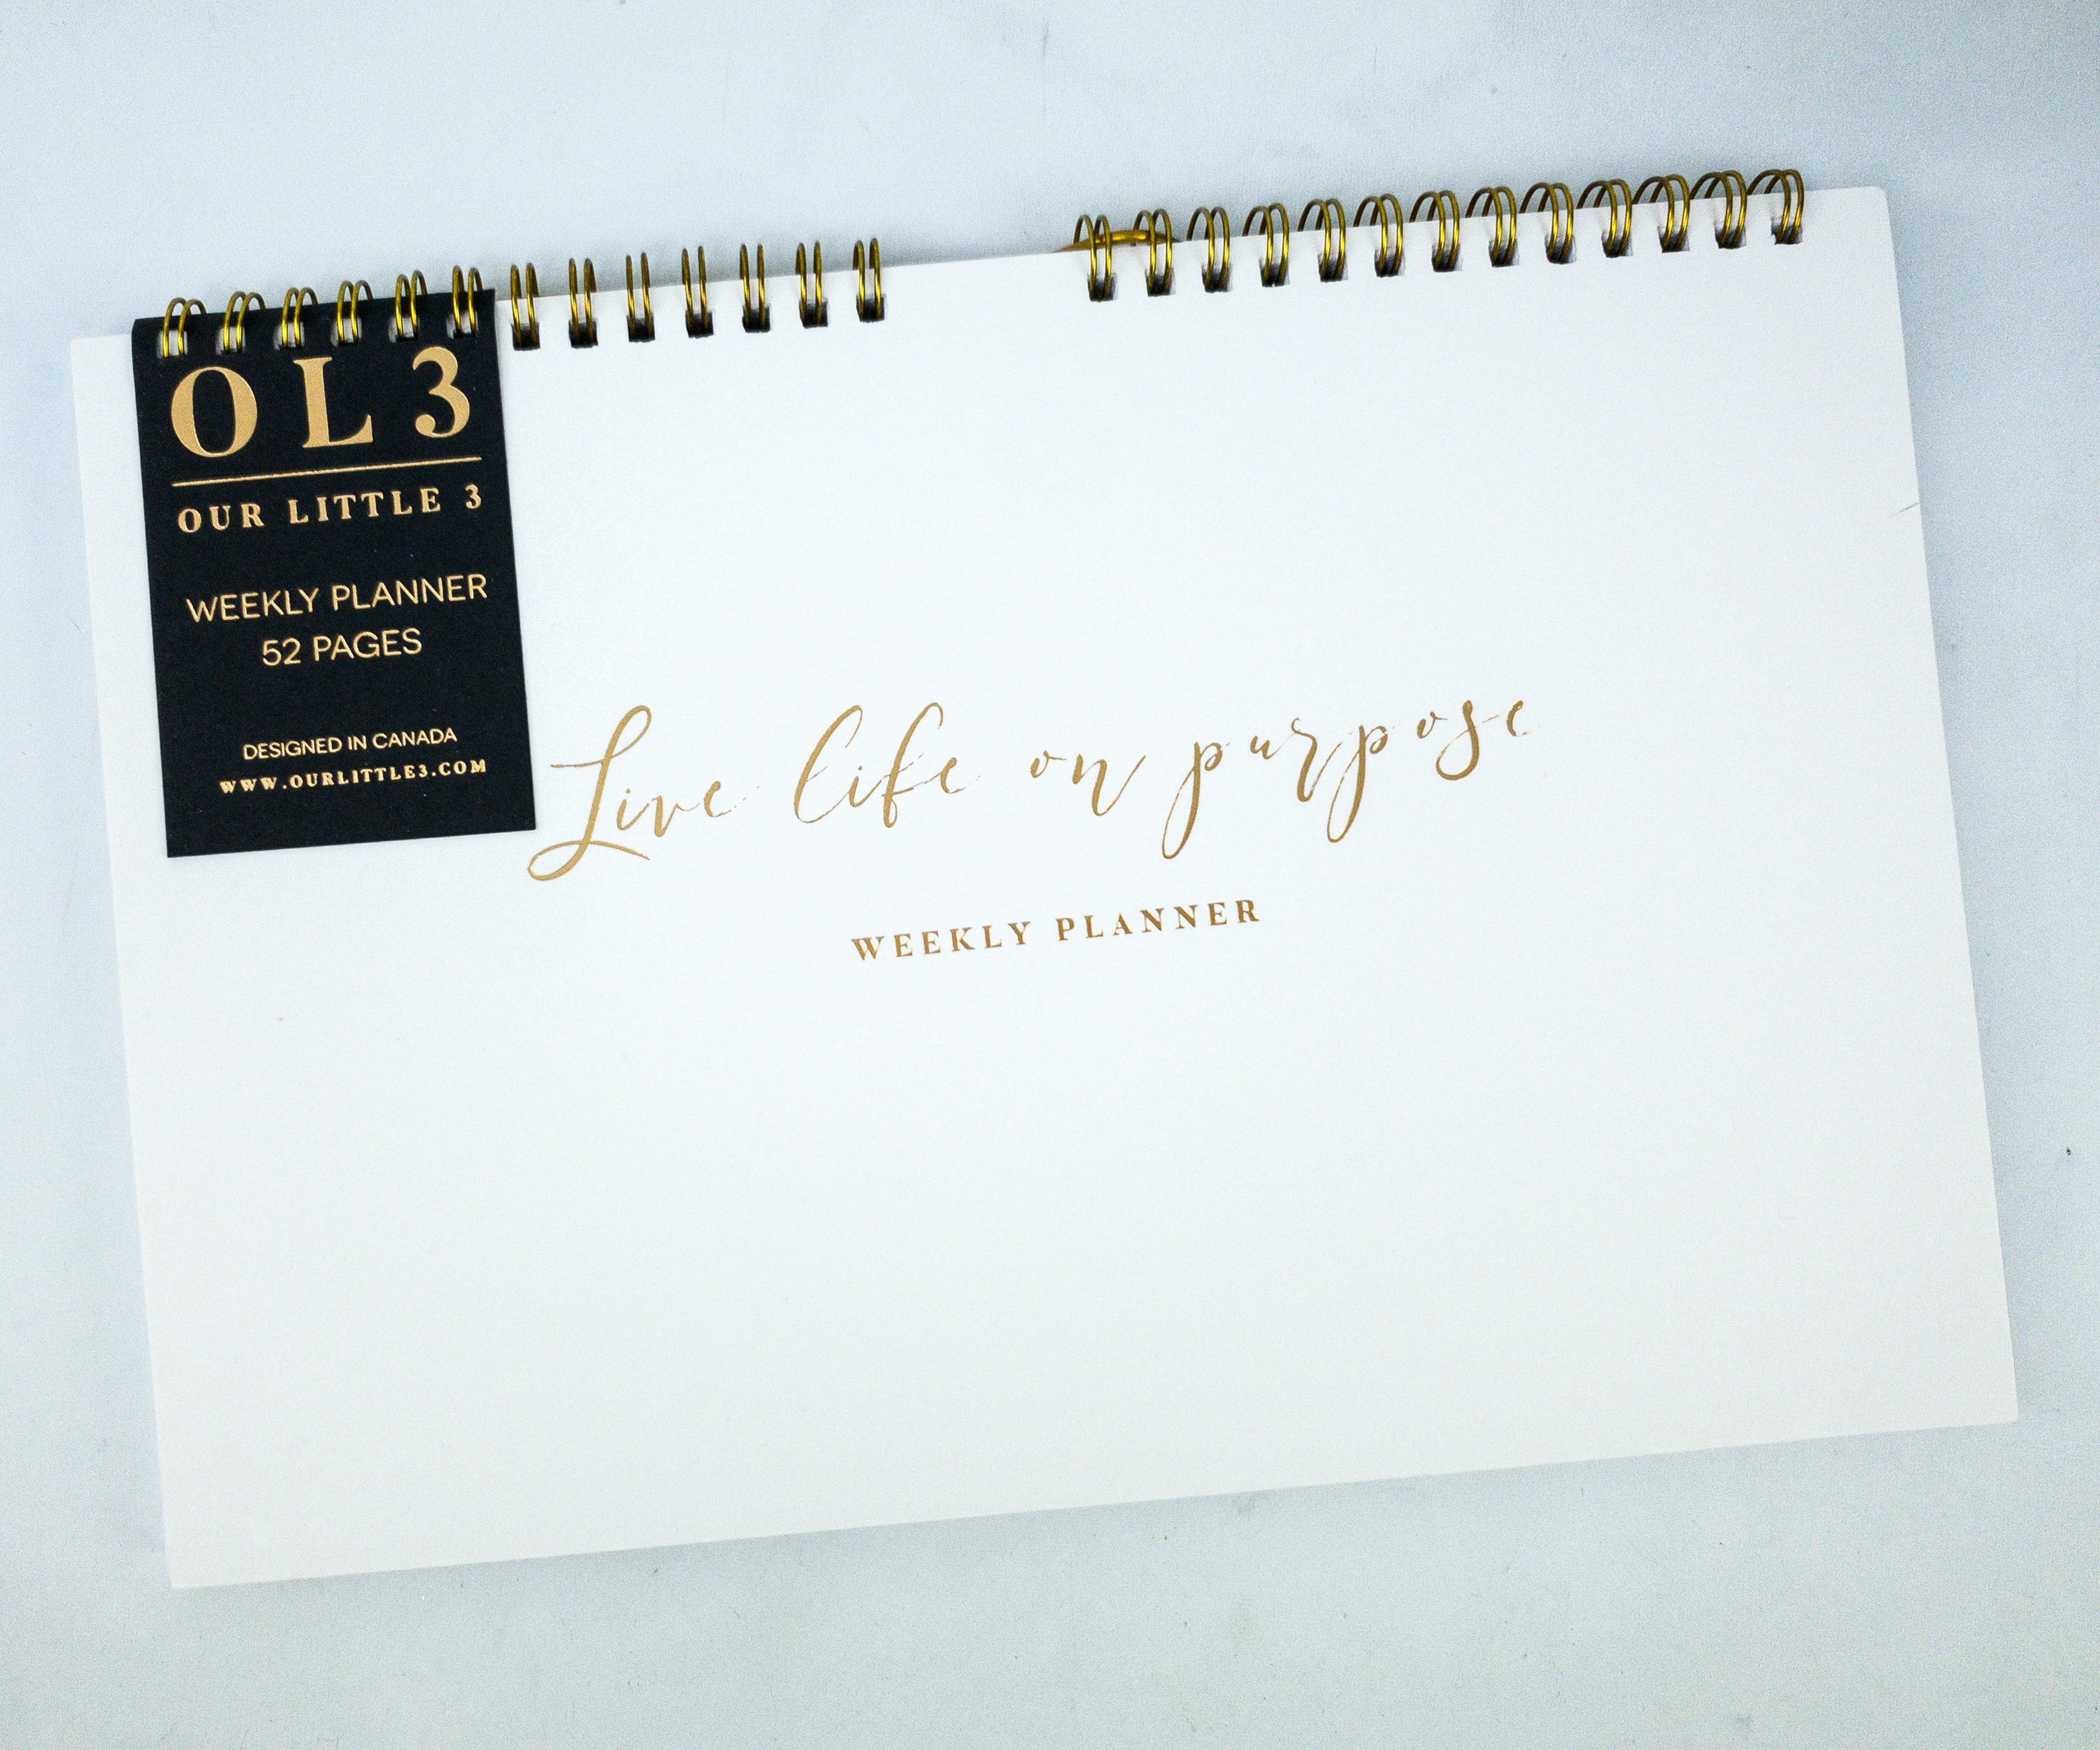 OL3
OUR LITTLE 3
WEEKLY PLANNER
52 PAGES
DESIGNED IN CANADA
WWW.OURLITTLE3.COM
Live life on purpose
WEEKLY PLANNER